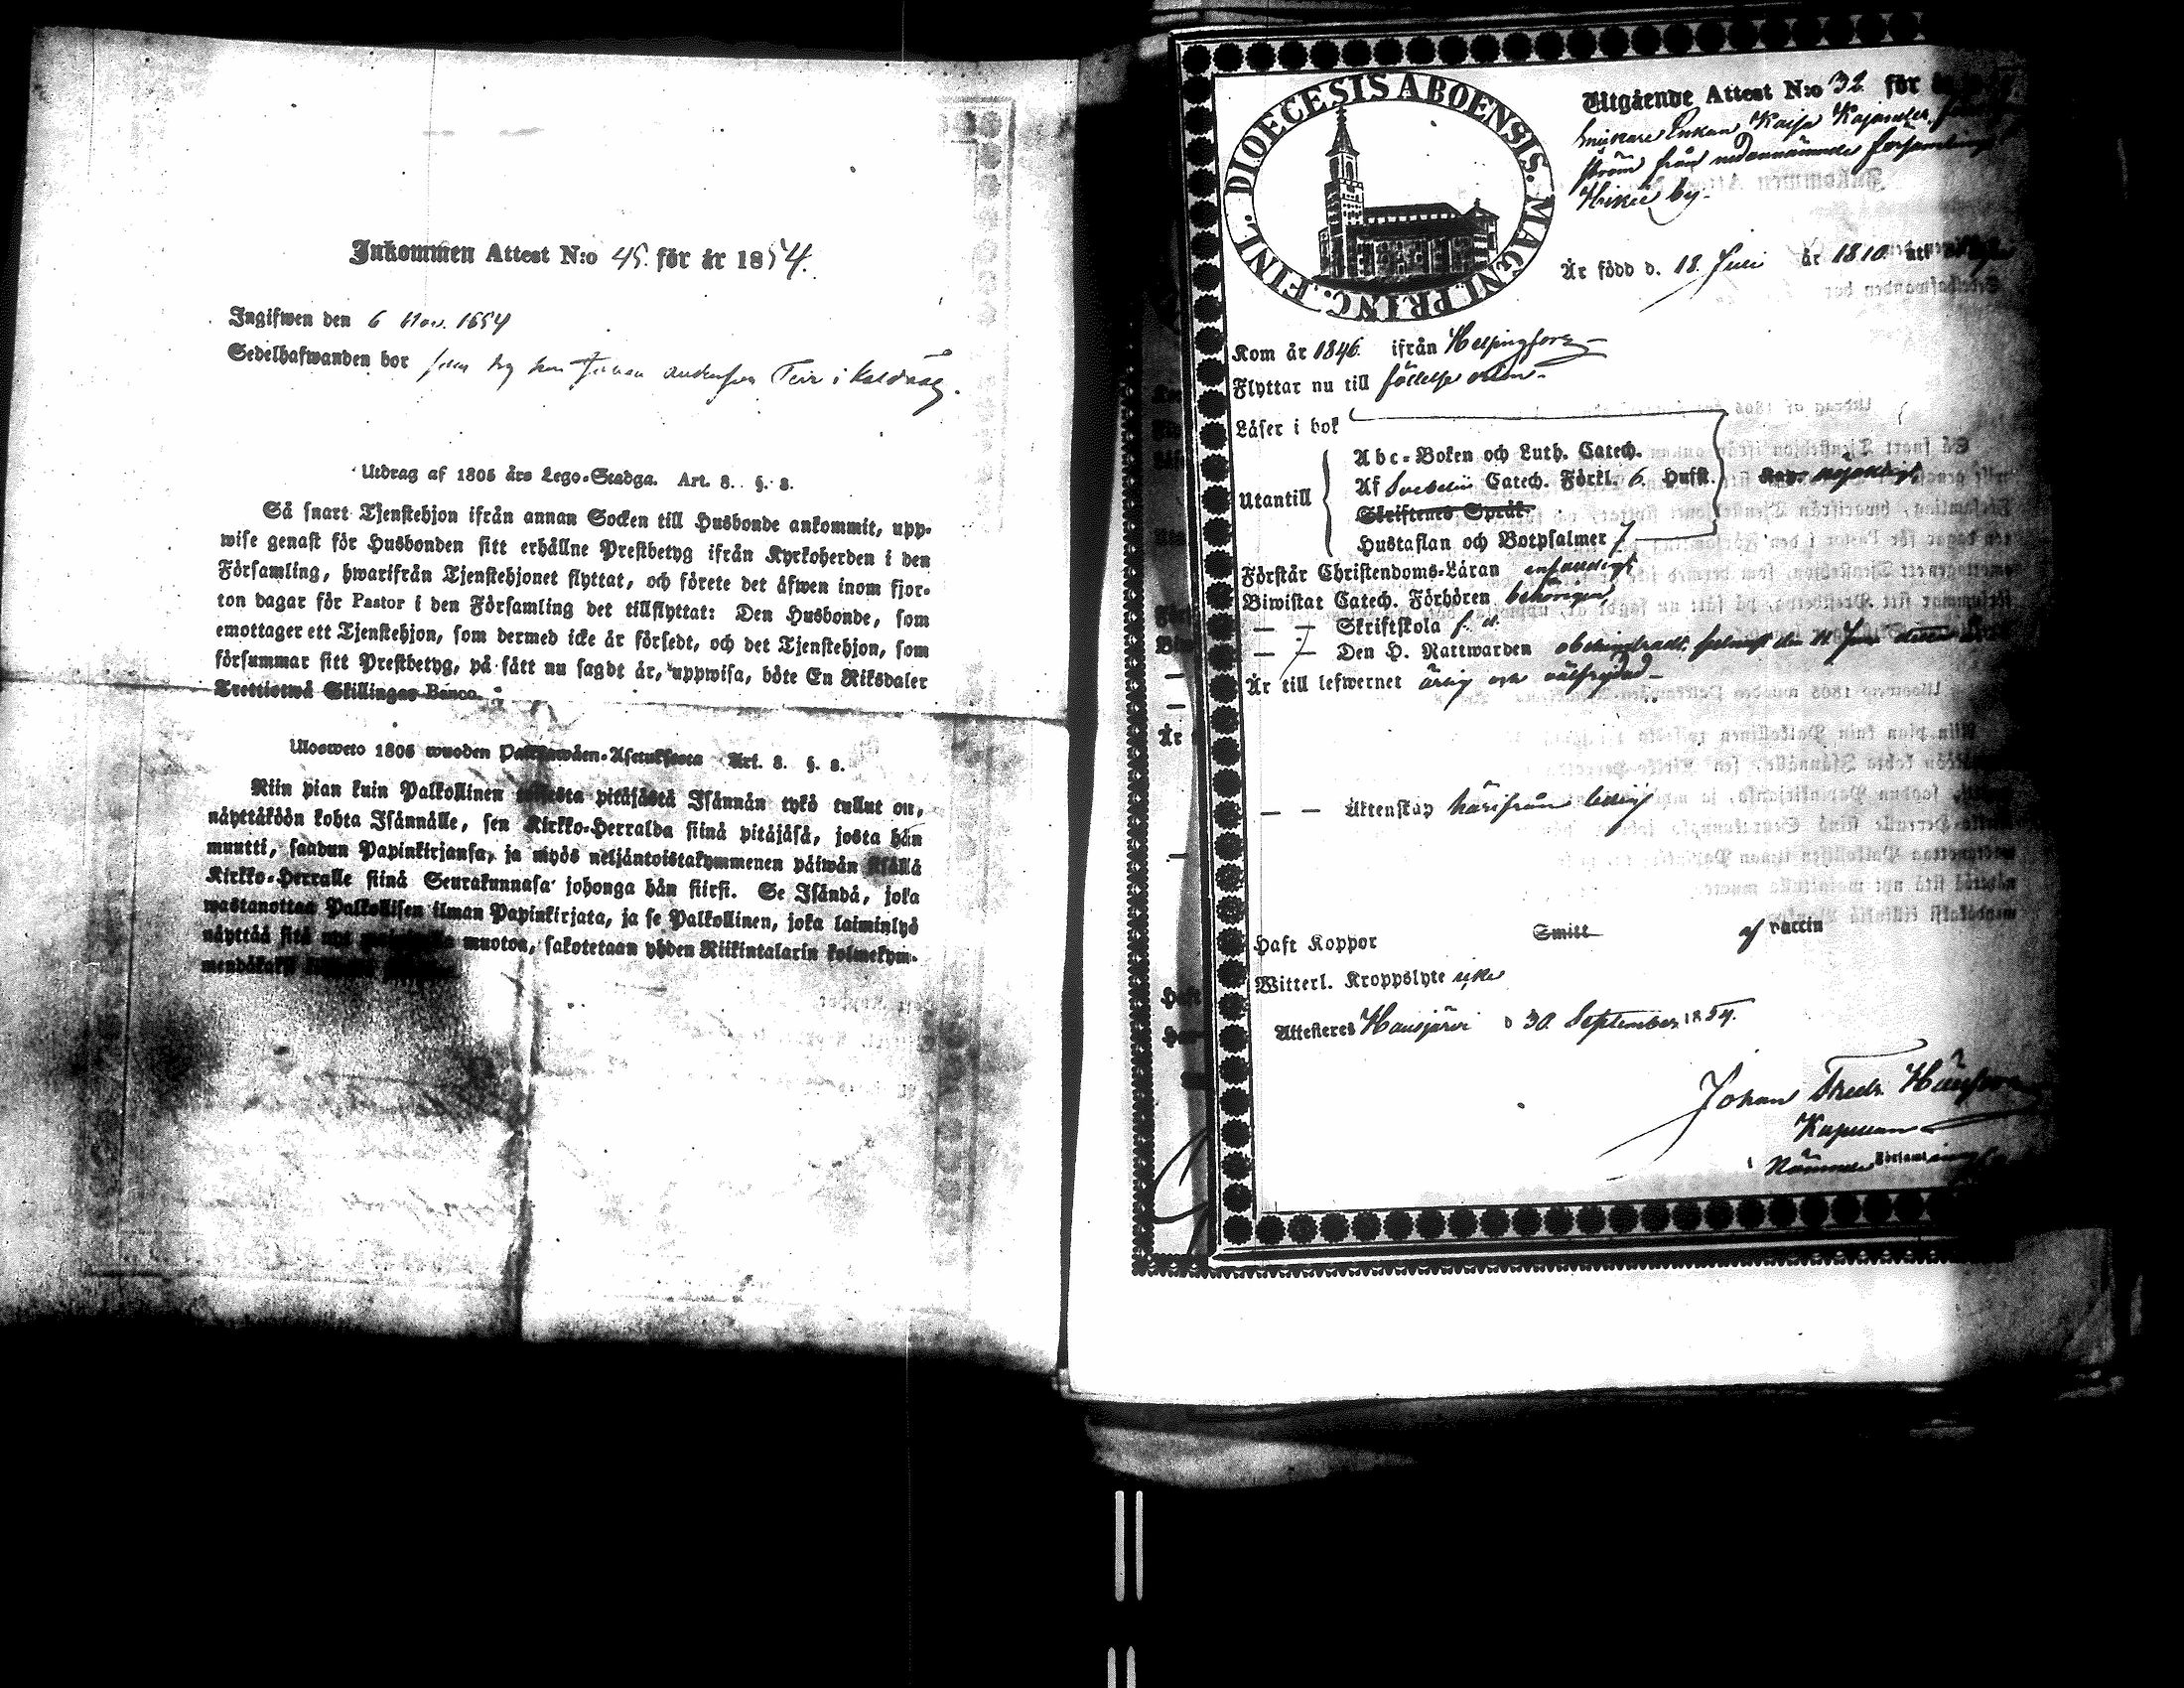 Inkommen Attest N:o 45. för år 1854.
Ingifwen den 6 Nov. 1854
Sedelhafwanden bor hos Johan Andersson Teir i
Utdrag af 1805 års Lego-Stadga. Art. 8. §. 8.
Så snart Tjenstehjon ifrån annan Socken till Husbonde ankommit, upp-
wise genast för Husbonden sitt erhållne Prestbetyg ifrån Kyrkoherden i den
Församling, hwarifrån Tjenstehjonet flyttat, och förete det äfwen inom fjor-
ton dagar för Pastor i den Församling det tillflyttat: Den Husbonde, som
emottager ett Tjenstehjon, som dermed icke är försedt, och det Tjenstehjon, som
försummar sitt Prestbetyg, på sätt nu sagdt är, uppwisa, böte En Riksdaler
Trettiotwå Skillingar Banco.
Ulosweto 1805 wuoden Palkkawäen-Asetuksesta Art. 8. §. 8.
Niin pian kuin Palkollinen toisesta pitäjästä Isännän tykö tullut on,
näyttäköön kohta Isännälle, sen Kirkko-Herralda siinä pitäjäsä, josta hän
muutti, saadun Papinkirjansa, ja myös neljäntoistakymmenen päiwän sisällä
Kirkko-Herralle siinä Seurakunnasa johonga hän siirsi. Se Isändä, joka
wastanottaa Palkollisen ilman Papinkirjata, ja se Palkollinen, joka laiminlyö
näyttää sitä nyt muotoa, sakotetaan yhden Riikintalarin kolmekym-
mendäkaksi
DIOECESIS ABOENSIS. MAGNI PRINC. FINL.
Utgående Attest N:o 32 för
Enkan Kaisa Kajander, född
ström från nedannämnde församling
Hikiä by.
Är född d. 18. Juli år 1810.
Kom år 1846. ifrån Helsingfors
Flyttar nu till födelse orten.
Läser i bok
Abc-Boken och Luth. Catech.
Utantill Af Svebelii Catech. Förkl. 6. Husst.
Skriftenes Språk.
Hustaflan och Botpsalmer 7
Förstår Christendoms-Läran
Biwistat Catech. Förhören behörigen
— — Skriftskola f. d.
— — Den H. Nattwarden obehindradt,
Är till lefwernet ärlig och välfrejdad
— — Äktenskap härifrån ledig
Haft Koppor Smitt af vaccin
Witterl. Kroppslyte icke
Attesteres Hausjärvi d 30. September 1854.
Johan Fredr.
Kapellan
i Nämnde Församling